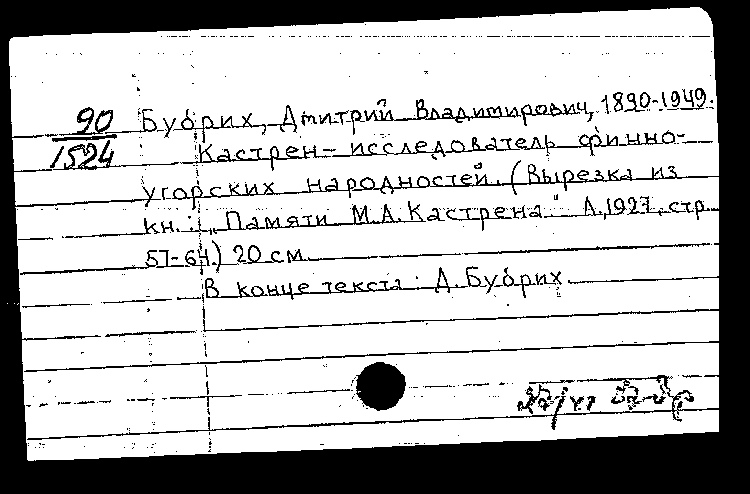 90 Бубрих, Дмитрий Владимирович, 1890-1949.
1524 Кастрен - исследователь финно-
угорских народностей. (Вырезка из
кн.: „Памяти М.А. Кастрена." Л., 1927, стр.
57-64.) 20 см.
В конце текста: Д. Бубрих.